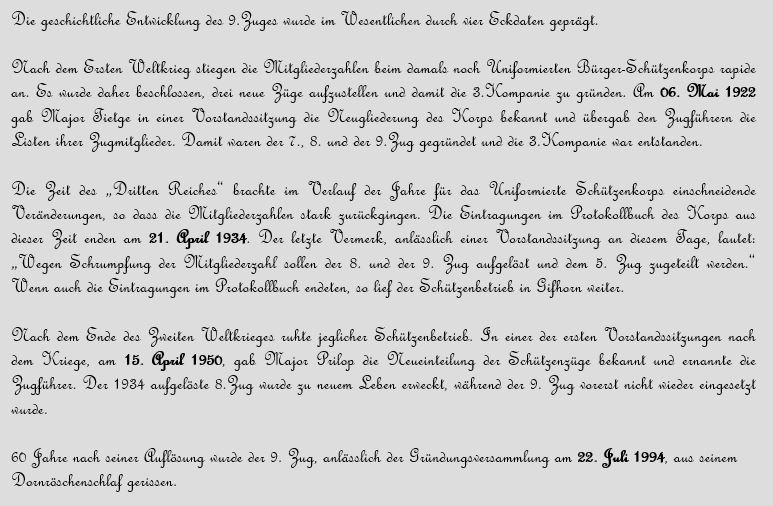 Die geschichtliche Entwicklung des 9.Zuges wurde im Wesentlichen durch vier Eckdaten geprägt.
Nach dem Ersten Weltkrieg stiegen die Mitgliederzahlen beim damals noch Uniformierten Bürger-Schützenkorps rapide
an. Es wurde daher beschlossen, drei neue Züge aufzustellen und damit die 3.Kompanie zu gründen. Am 06. Mai 1922
gab Major Tietge in einer Vorstandssitzung die Neugliederung des Korps bekannt und übergab den Zugführern die
Listen ihrer Zugmitglieder. Damit waren der 7., 8. und der 9.Zug gegründet und die 3.Kompanie war entstanden.
Die Zeit des „Dritten Reiches“ brachte im Verlauf der Jahre für das Uniformierte Schützenkorps einschneidende
Veränderungen, so dass die Mitgliederzahlen stark zurückgingen. Die Eintragungen im Protokollbuch des Korps aus
dieser Zeit enden am 21. April 1934. Der letzte Vermerk, anlässlich einer Vorstandssitzung an diesem Tage, lautet:
„Wegen Schrumpfung der Mitgliederzahl sollen der 8. und der 9. Zug aufgelöst und dem 5. Zug zugeteilt werden.“
Wenn auch die Eintragungen im Protokollbuch endeten, so lief der Schützenbetrieb in Gifhorn weiter.
Nach dem Ende des Zweiten Weltkrieges ruhte jeglicher Schützenbetrieb. In einer der ersten Vorstandssitzungen nach
dem Kriege, am 15. April 1950, gab Major Prilop die Neueinteilung der Schützenzüge bekannt und ernannte die
Zugführer. Der 1934 aufgelöste 8.Zug wurde zu neuem Leben erweckt, während der 9. Zug vorerst nicht wieder eingesetzt
wurde.
60 Jahre nach seiner Auflösung wurde der 9. Zug, anlässlich der Gründungsversammlung am 22. Juli 1994, aus seinem
Dornröschenschlaf gerissen.